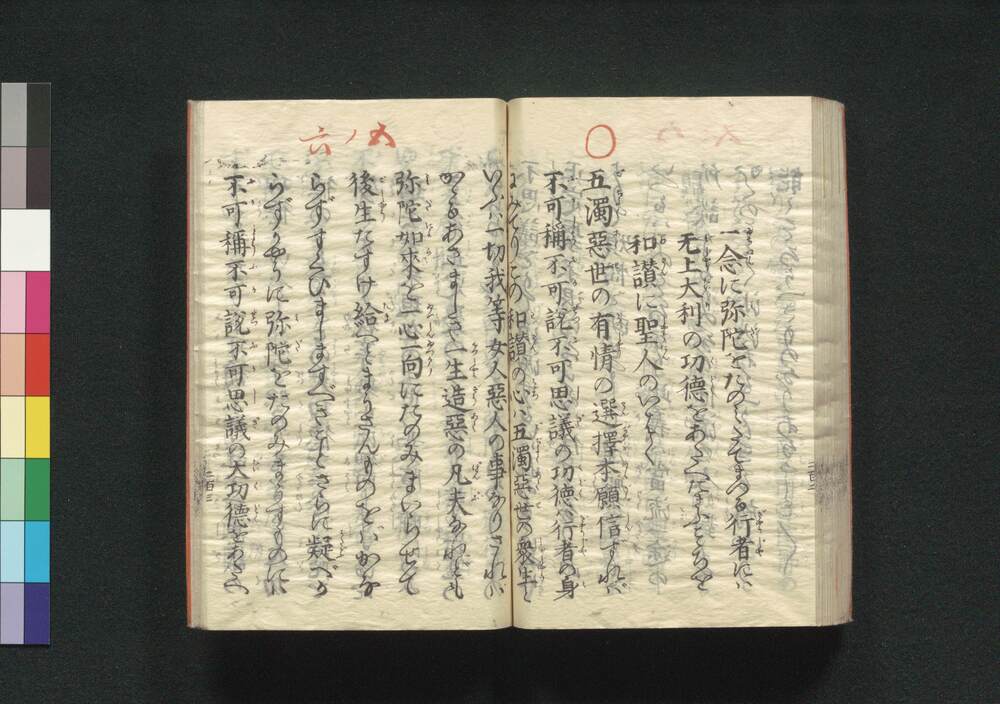 一念に弥陀をたのみたてまつる行者には
无上大利の功徳をあたへたまふこゝろを
和讃に聖人のいはく
五濁惡世の有情の選擇本願信すれは
不可稱不可説不可思議の功徳は行者の身
にみてりこの和讃の心は五濁惡世の衆生と
いふは一切我等女人惡人の事なりされは
かゝるあさましき一生造惡の凡夫なれとも
弥陀如來を一心一向にたのみまいらせて
後生たすけ給へとまうさんものをはかな
らずすくひましますべきことさらに疑べか
らずかやうに弥陀をたのみまうすものには
不可稱不可説不可思議の大功徳をあたへ
五ノ六
二百三